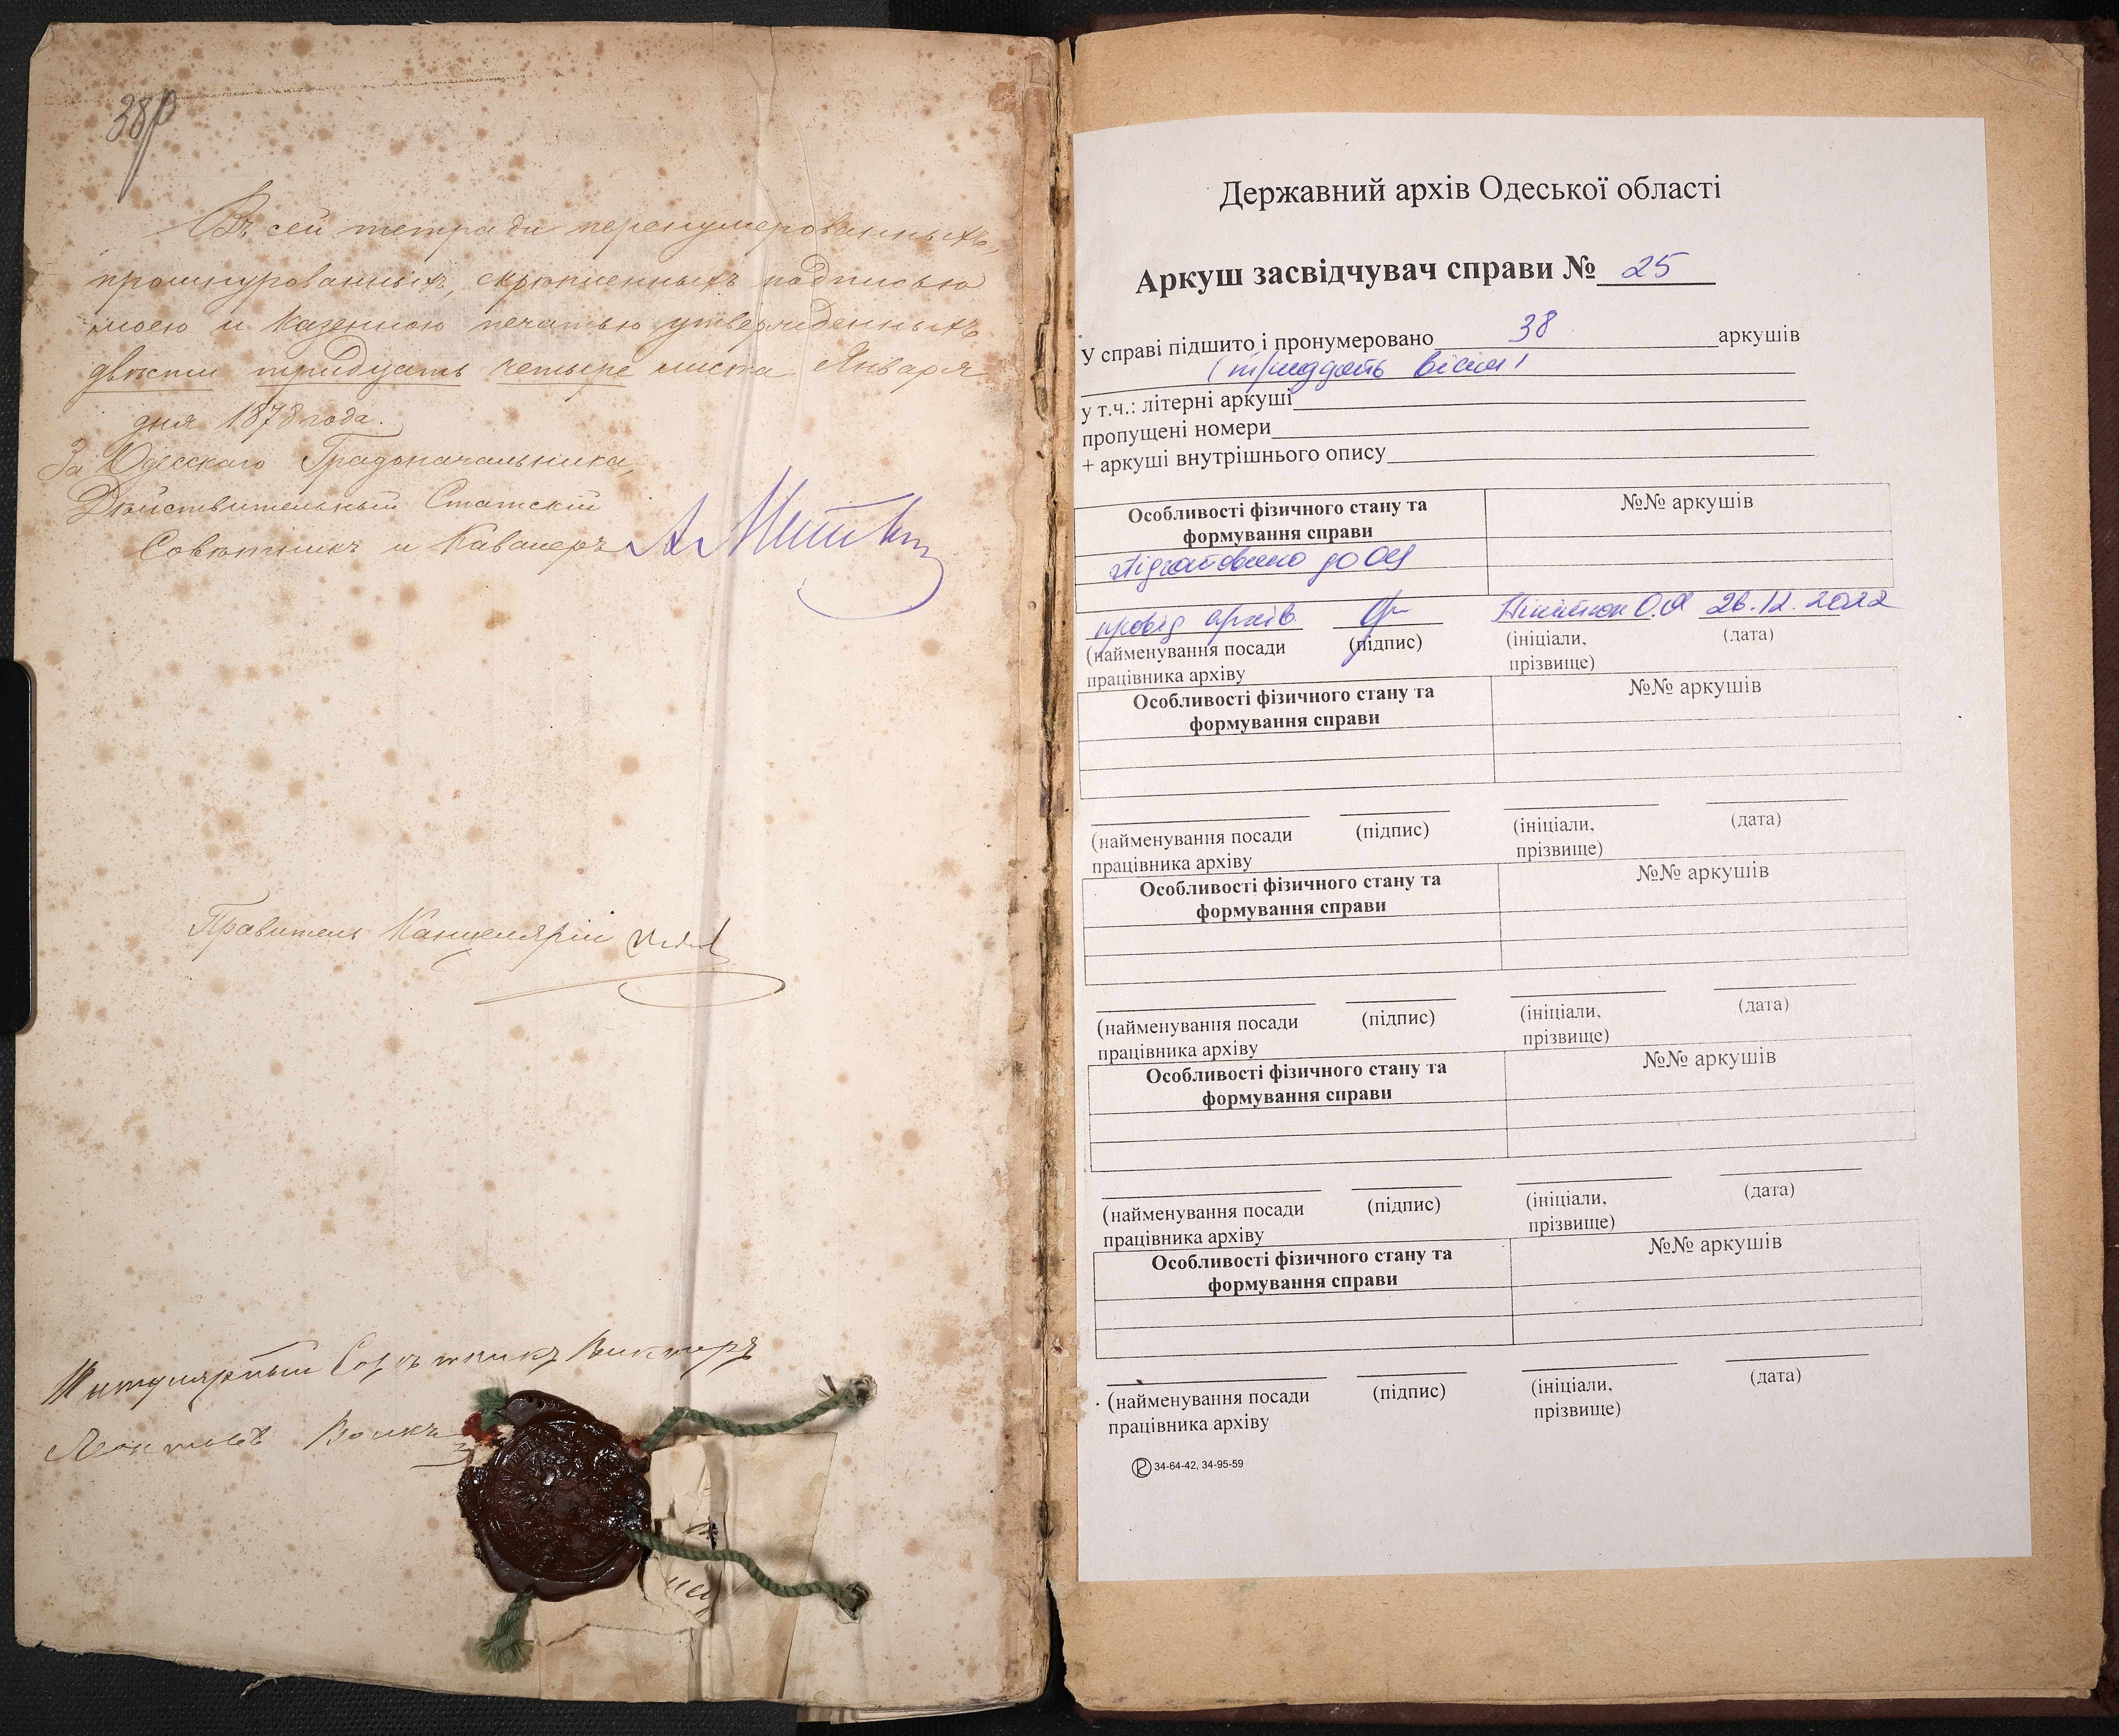 38
Въ сей тетради перенумерованныхъ,
прошнурованныхъ, скрѣпленныхъ подписью
моею и казенною печатью утвержденныхъ
двѣсти тридцать четыре листа Января
дня 1878 года.
За Одесскаго Градоначальника,
Дѣйствительный Статскій
Совѣтникъ и Кавалеръ
Правитель Канцеляріи
Титулярный Совѣтникъ Викторъ
Леонтьевъ
Державний архів Одеської області
Аркуш засвідчувач справи № 25
У справі підшито і пронумеровано 38 аркушів
(тридцять вісім)
у т.ч.: літерні аркуші
пропущені номери
+ аркуші внутрішнього опису
Особливості фізичного стану та формування справи №№ аркушів
підготовлено до ОЦ
провід архів. О.Я 26.12.2022
(найменування посади (підпис) (ініціали, (дата)
працівника архіву прізвище)
Особливості фізичного стану та №№ аркушів
формування справи
(найменування посади (підпис) (ініціали, (дата)
працівника архіву прізвище)
Особливості фізичного стану та №№ аркушів
формування справи
(найменування посади (підпис) (ініціали, (дата)
працівника архіву прізвище)
Особливості фізичного стану та №№ аркушів
формування справи
(найменування посади (підпис) (ініціали, (дата)
працівника архіву прізвище)
Особливості фізичного стану та №№ аркушів
формування справи
(найменування посади (підпис) (ініціали, (дата)
працівника архіву прізвище)
34-64-42, 34-95-59